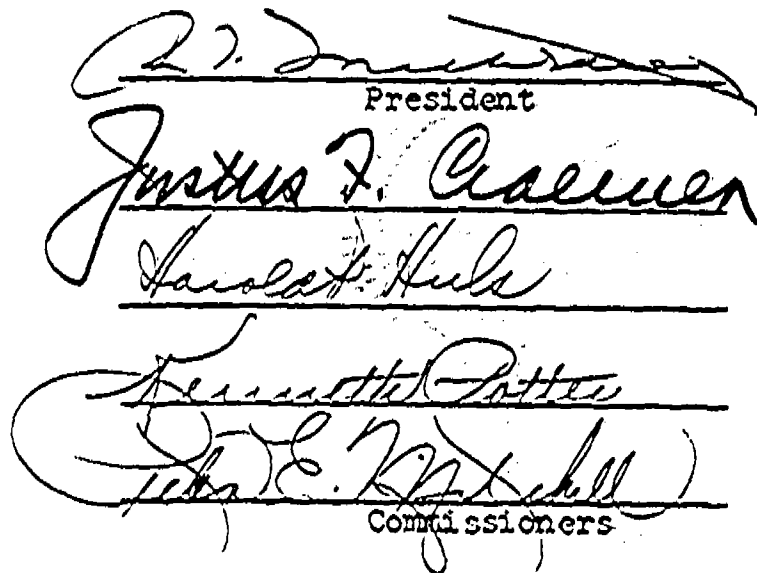 President
Justus F. Craemer
Harold P. Huls
Kenneth Potter
John E. Mitchell
Commissioners